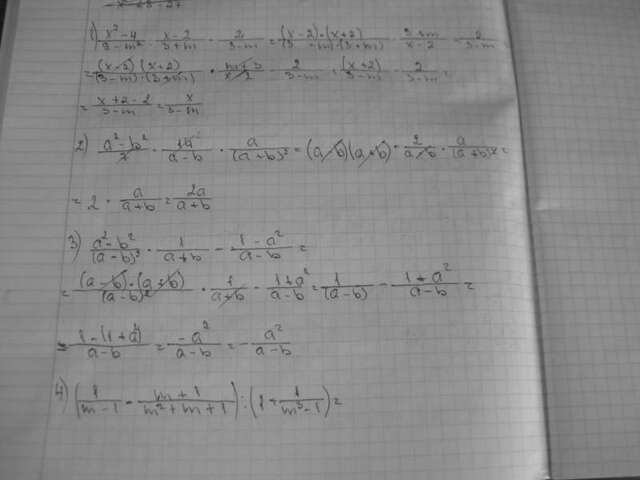 1) (x² - 4)/(9 - m²) : (x - 2)/(3 + m) - 2/(3 - m) = (x - 2)·(x + 2)/(3 - m)·(3 + m) · (3 + m)/(x - 2) - 2/(3 - m) =
= (x - 2)·(x + 2)/(3 - m)·(3 + m) · (m + 3)/(x - 2) - 2/(3 - m) = (x + 2)/(3 - m) - 2/(3 - m) =
= (x + 2 - 2)/(3 - m) = x/(3 - m)
= 2 · a/(a + b) = 2a/(a + b)
3) (a² - b²)/(a - b)² · 1/(a + b) - (1 - a²)/(a - b) =
= (a - b)·(a + b)/(a - b)² · 1/(a + b) - (1 + a²)/(a - b) = 1/(a - b) - (1 + a²)/(a - b) =
= (1 - (1 + a²))/(a - b) = -a²/(a - b) = - a²/(a - b)
4) (1/(m - 1) - (m + 1)/(m² + m + 1)) : (1 + 1/(m³ - 1)) =